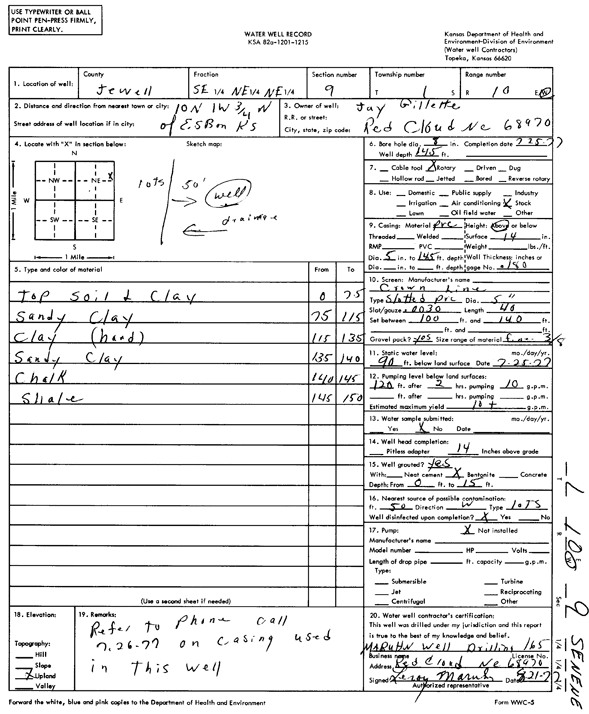 USE TYPEWRITER OR BALL
POINT PEN-PRESS FIRMLY,
PRINT CLEARLY.
WATER WELL RECORD
KSA 82a-1201-1215
Kansas Department of Health and
Environment-Division of Environment
(Water well Contractors)
Topeka, Kansas 66620
1. Location of well: County Jewell Fraction SE 1/4 NE 1/4 NE 1/4 Section number 9 Township number T 1 S Range number R 10 E W
2. Distance and direction from nearest town or city: 10N 1W 3/4 N
Street address of well location if in city: of ESBon Ks
3. Owner of well: Jay Gillette
R.R. or street:
City, state, zip code: Red Cloud Ne 68970
4. Locate with "X" in section below:
Sketch map:
N
NW NE X
W E
SW SE
S
1 Mile
1 Mile
lots 50' well
drainage
6. Bore hole dia. 8 in. Completion date 7-25-77
Well depth 145 ft.
7. Cable tool X Rotary Driven Dug
Hollow rod Jetted Bored Reverse rotary
8. Use: Domestic Public supply Industry
Irrigation Air conditioning X Stock
Lawn Oil field water Other
9. Casing: Material PVC Height: Above or below
Threaded Welded Surface 14 in.
RMP PVC Weight lbs./ft.
Dia. 5 in. to 145 ft. depth Wall Thickness: inches or
Dia. in. to ft. depth gage No. .180
5. Type and color of material From To
Top Soil & Clay 0 75
Sandy Clay 75 115
Clay (hard) 115 135
Sandy Clay 135 140
Chalk 140 145
Shale 145 150
(Use a second sheet if needed)
10. Screen: Manufacturer's name
Crown Line
Type Slotted PVC Dia. 5"
Slot/gauze .0030 Length 40
Set between 100 ft. and 140 ft.
ft. and ft.
Gravel pack? yes Size range of material 3/8
11. Static water level: mo./day/yr.
90 ft. below land surface Date 7-25-77
12. Pumping level below land surfaces:
120 ft. after 2 hrs. pumping 10 g.p.m.
ft. after hrs. pumping g.p.m.
Estimated maximum yield 10+ g.p.m.
13. Water sample submitted: mo./day/yr.
Yes X No Date
14. Well head completion:
Pitless adapter 14 Inches above grade
15. Well grouted? yes
With: Neat cement X Bentonite Concrete
Depth: From 0 ft. to 15 ft.
16. Nearest source of possible contamination:
ft. 50 Direction W Type lots
Well disinfected upon completion? X Yes No
17. Pump: X Not installed
Manufacturer's name
Model number HP Volts
Length of drop pipe ft. capacity g.p.m.
Type:
Submersible Turbine
Jet Reciprocating
Centrifugal Other
18. Elevation:
Topography:
Hill
Slope
X Upland
Valley
19. Remarks:
Refer to Phone call
7-26-77 on casing used
in this well
20. Water well contractor's certification:
This well was drilled under my jurisdiction and this report
is true to the best of my knowledge and belief.
MARUHN Well Drilling 165
Business name License No.
Address Red Cloud Ne 68970
Signed Leroy Maruhn Date
Authorized representative
Forward the white, blue and pink copies to the Department of Health and Environment
Form WWC-5
T R Sec 9 SENENE
1/4 1/4 1/4